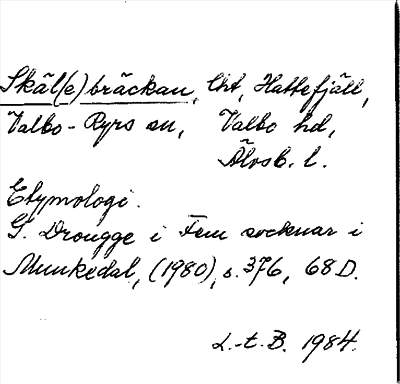 Skäl(e)bräckan, lht, Hattefjäll,
Valbo-Ryrs sn, Valbo hd,
Älvsb. l.
Etymologi.
G. Drougge i Fem socknar i
Munkedal, (1980), s. 376, 68 D.
L.-t. B. 1984.